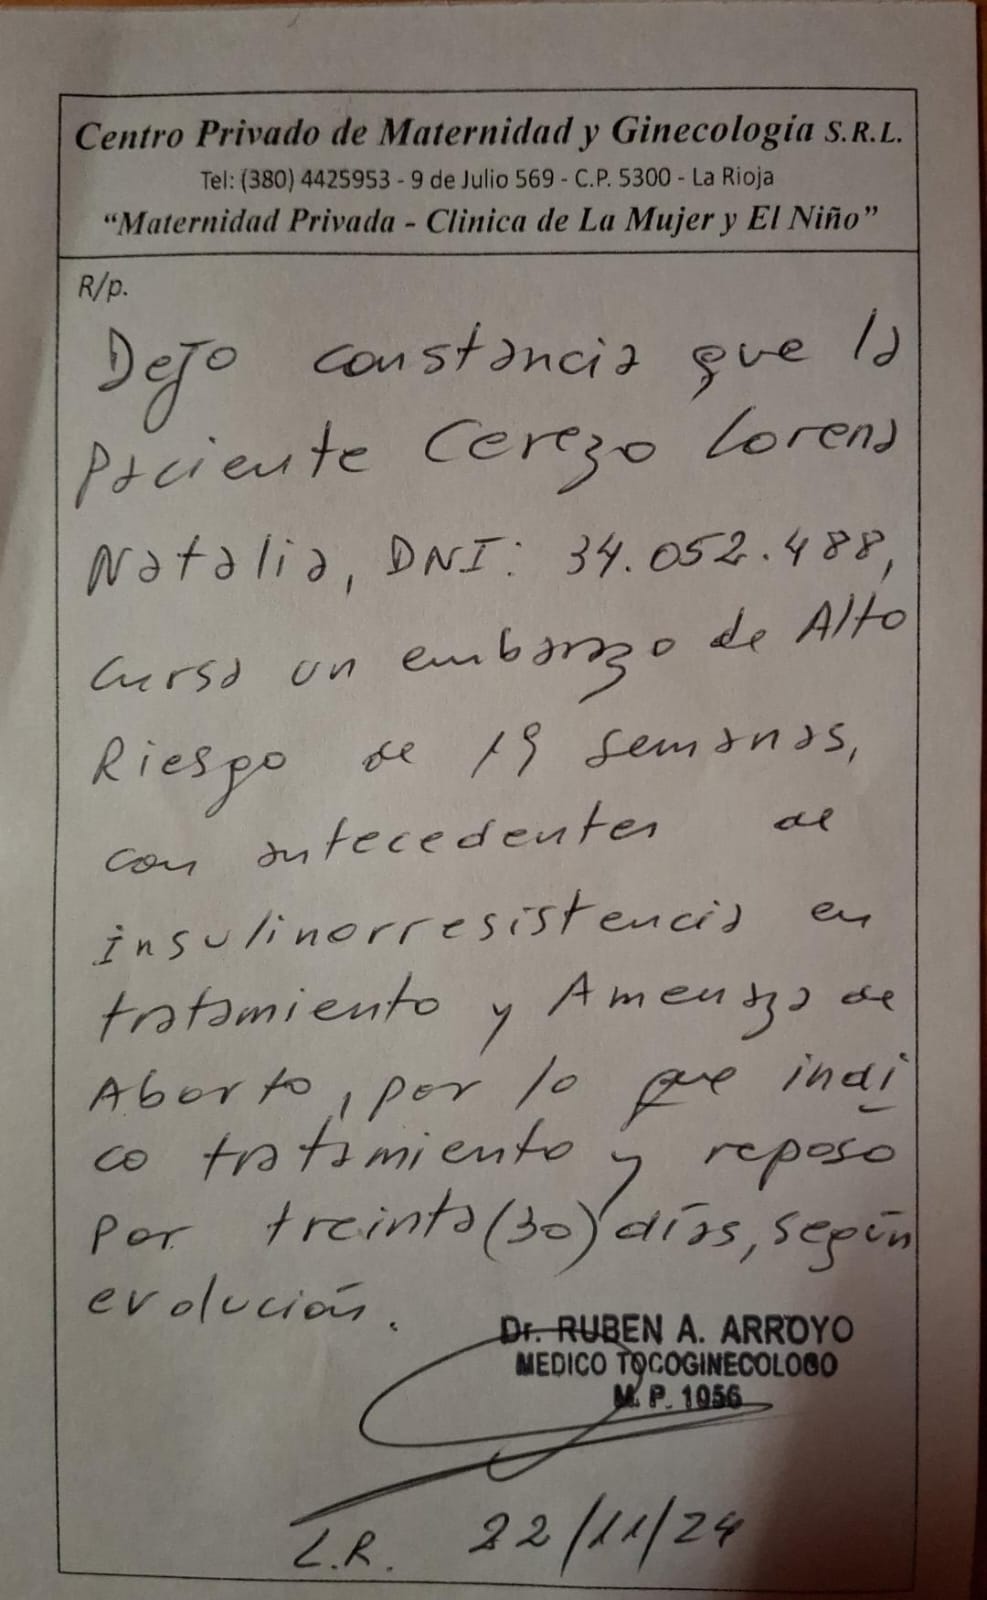 Centro Privado de Maternidad y Ginecología S.R.L.
Tel: (380) 4425953 - 9 de Julio 569 - C.P. 5300 - La Rioja
“Maternidad Privada - Clinica de La Mujer y El Niño”
R/p.
Dejo constancia que la
Paciente Cerezo Lorena
Natalia, DNI: 34.052.488,
cursa un embarazo de Alto
Riesgo de 19 semanas,
con antecedentes de
insulinorresistencia en
tratamiento y Amenaza de
Aborto, por lo que indi
co tratamiento y reposo
por treinta (30) días, según
evolución.
Dr. RUBEN A. ARROYO
MEDICO TOCOGINECOLOGO
M. P. 1056
L.R. 22/11/24